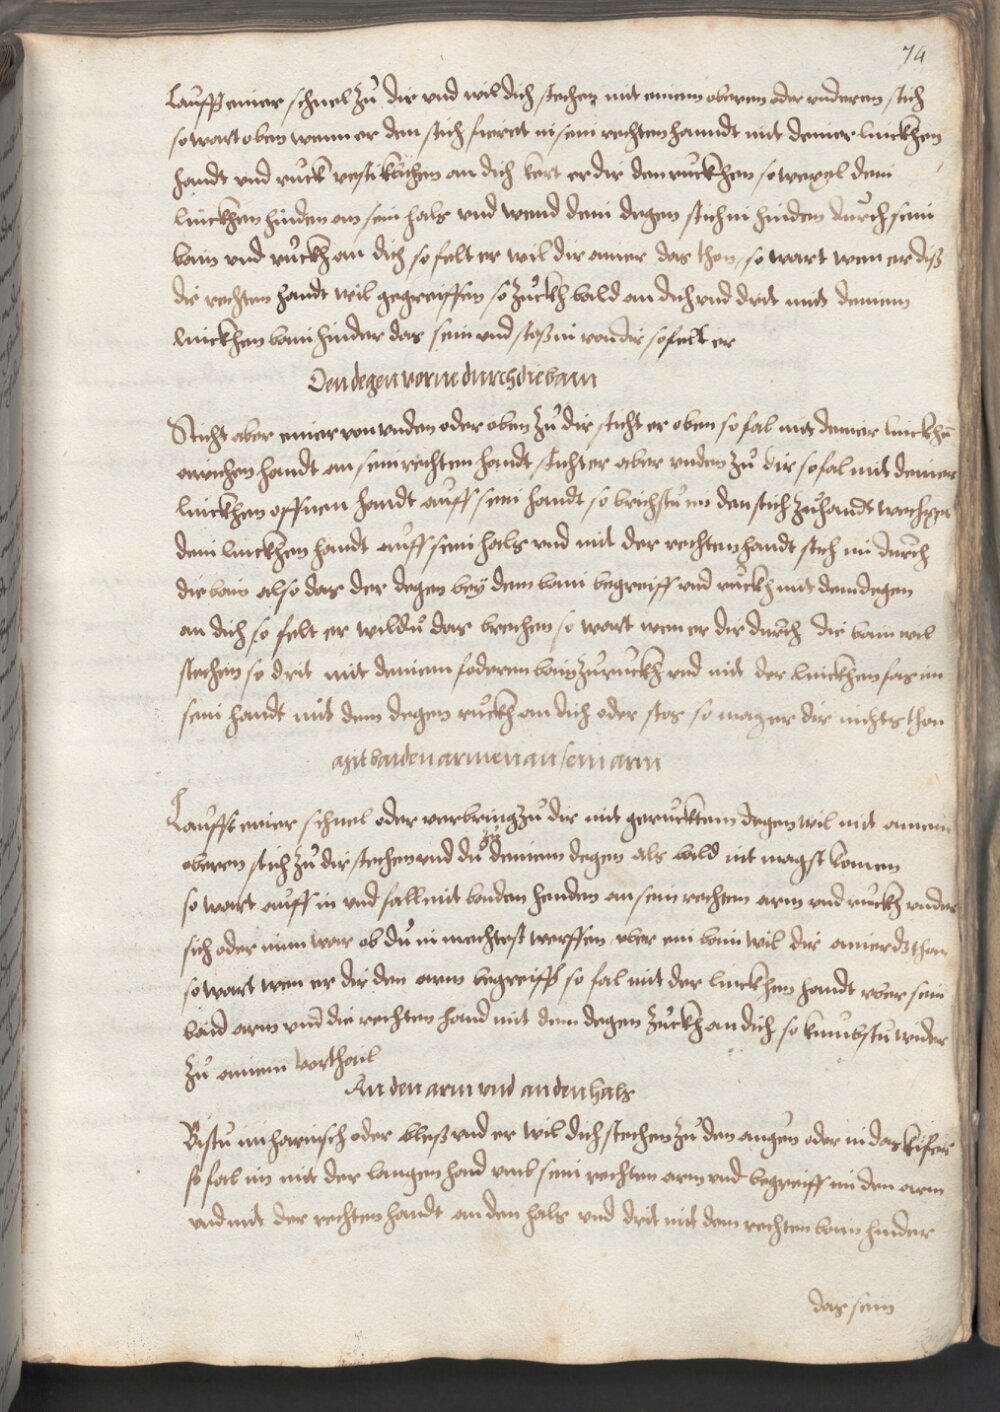 74
Laufft einer schnel zů dir vnd wil dich stechen mit einem oberen oder vnderem stich
so wart oben wenn er den stich fieret in sein rechten hanndt mit deiner linckhen
handt vnd ruck vestiklichen an dich kert er dir den ruckhen so wexel dein
linckhen hinden om sein hals vnd wend dein degen stich in hinden durch sein
bain vnd ruckh an dich so felt er wil dir ainer das thon, so wart wen er diß
die rechten handt wil gegreiffen so zuckh bald an dich vnd drit mit deinem
linckhen bain hinder das sein vnd stoß in von dir so felt er
Den degen vorne durch die bain
Sticht aber einer von vnden oder oben zů dir sticht er oben so fal mit deiner linckhen
ainichen handt an sein rechten handt sticht er aber vnden zů dir so fal mit deiner
linckhen offnen handt auff sein handt so brichstu im den stich zůhandt wechsel
dein linckhen handt auff sein hals vnd mit der rechten handt stich im durch
die bain also das der degen bey dem bain begreiff vnd ruckh mit dem degen
an dich so felt er wildu das brechen so wart wen er dir durch die bain wil
stechen so drit mit deinem foderem bain zuruckh vnd mit der linckhen fas im
sein handt mit dem degen ruckh an dich oder stos so mag er dir nichts thon
Mit baiden armen an sein arm
Laufft einer schnel oder verbring zů dir mit geruckhtem degen wil mit ainem
oberen stich zů dir stechen vnd du zů deinem degen als bald nit magst komen
so wart auff in vnd fall mit baiden henden an sein rechtem arm vnd ruckh vnder
sich oder nim war ob du in mechtest werffen vber ein bain wil dir ainer dz thon
so wart wen er dir den arm begreifft so fal mit der linckhen handt vber sein
baid arm vnd die rechten hand mit dem degen zuckh an dich so kumbstu wider
zů ainem vorthail
An den arm vnd an den hals
Bistu im harnisch oder bloß vnd er wil dich stechen zů den augen oder in das
so fal im mit der langen hand vmb sein rechten arm vnd begreiff im den arm
vnd mit der rechten handt an den hals vnd drit mit dem rechten bain hinder
das sein